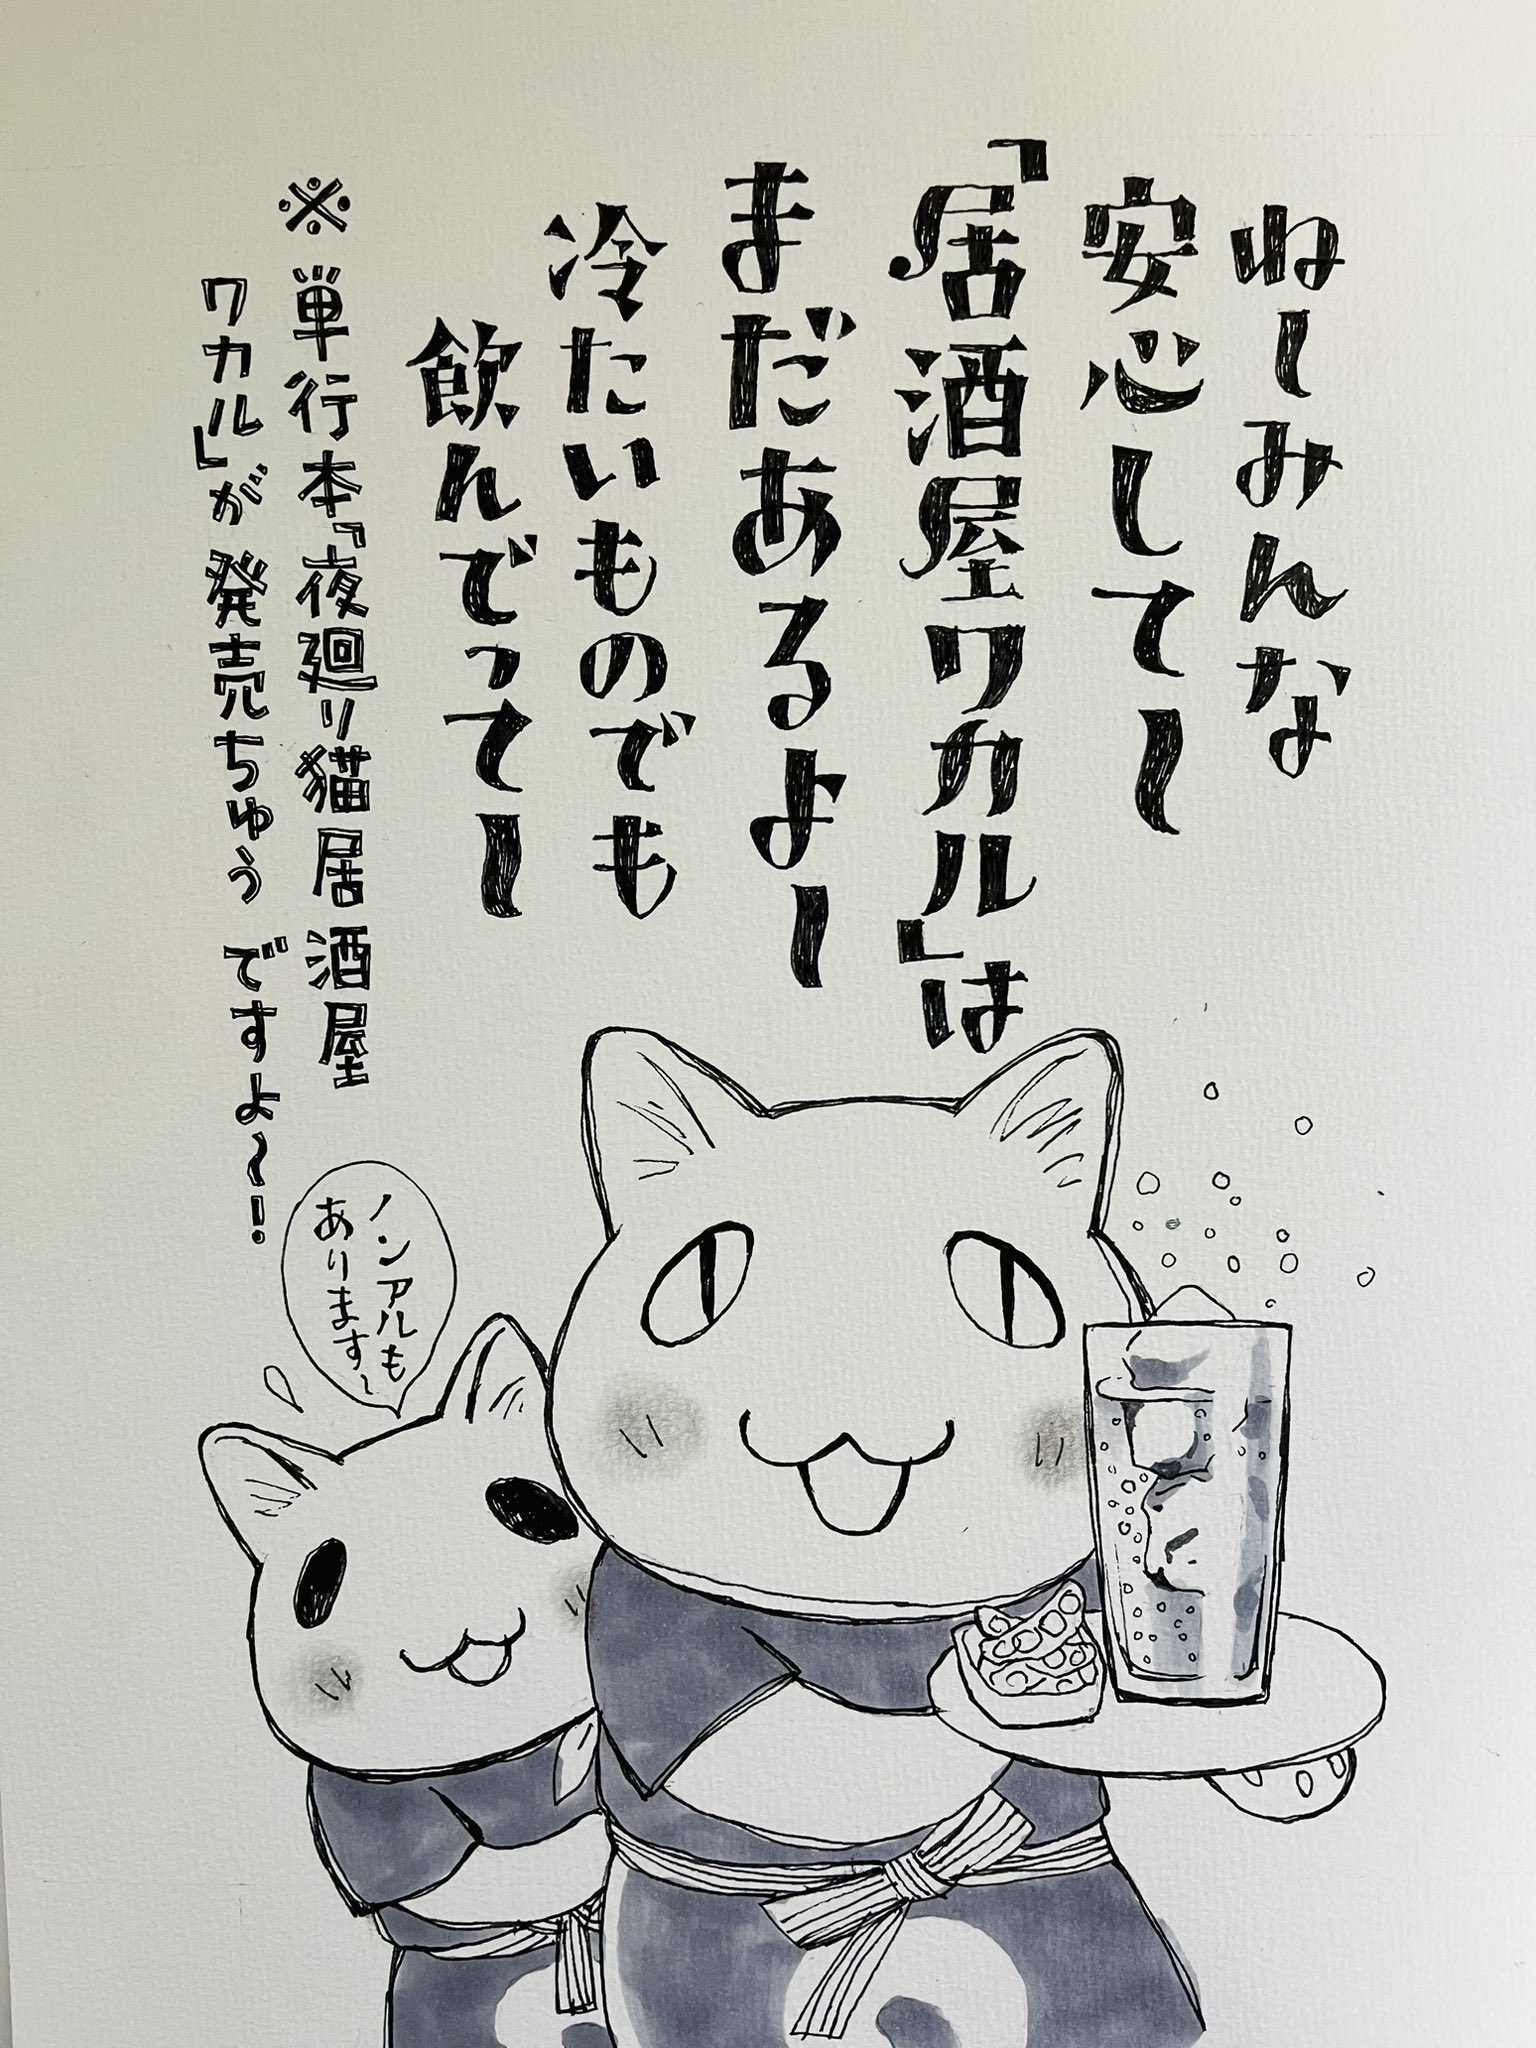 ねーみんな
安心してー
「居酒屋ワカル」は
まだあるよー
冷たいものでも
飲んでってー
※単行本『夜廻り猫居酒屋
ワカル』が発売ちゅうですよ〜!
ノンアルも
あります〜